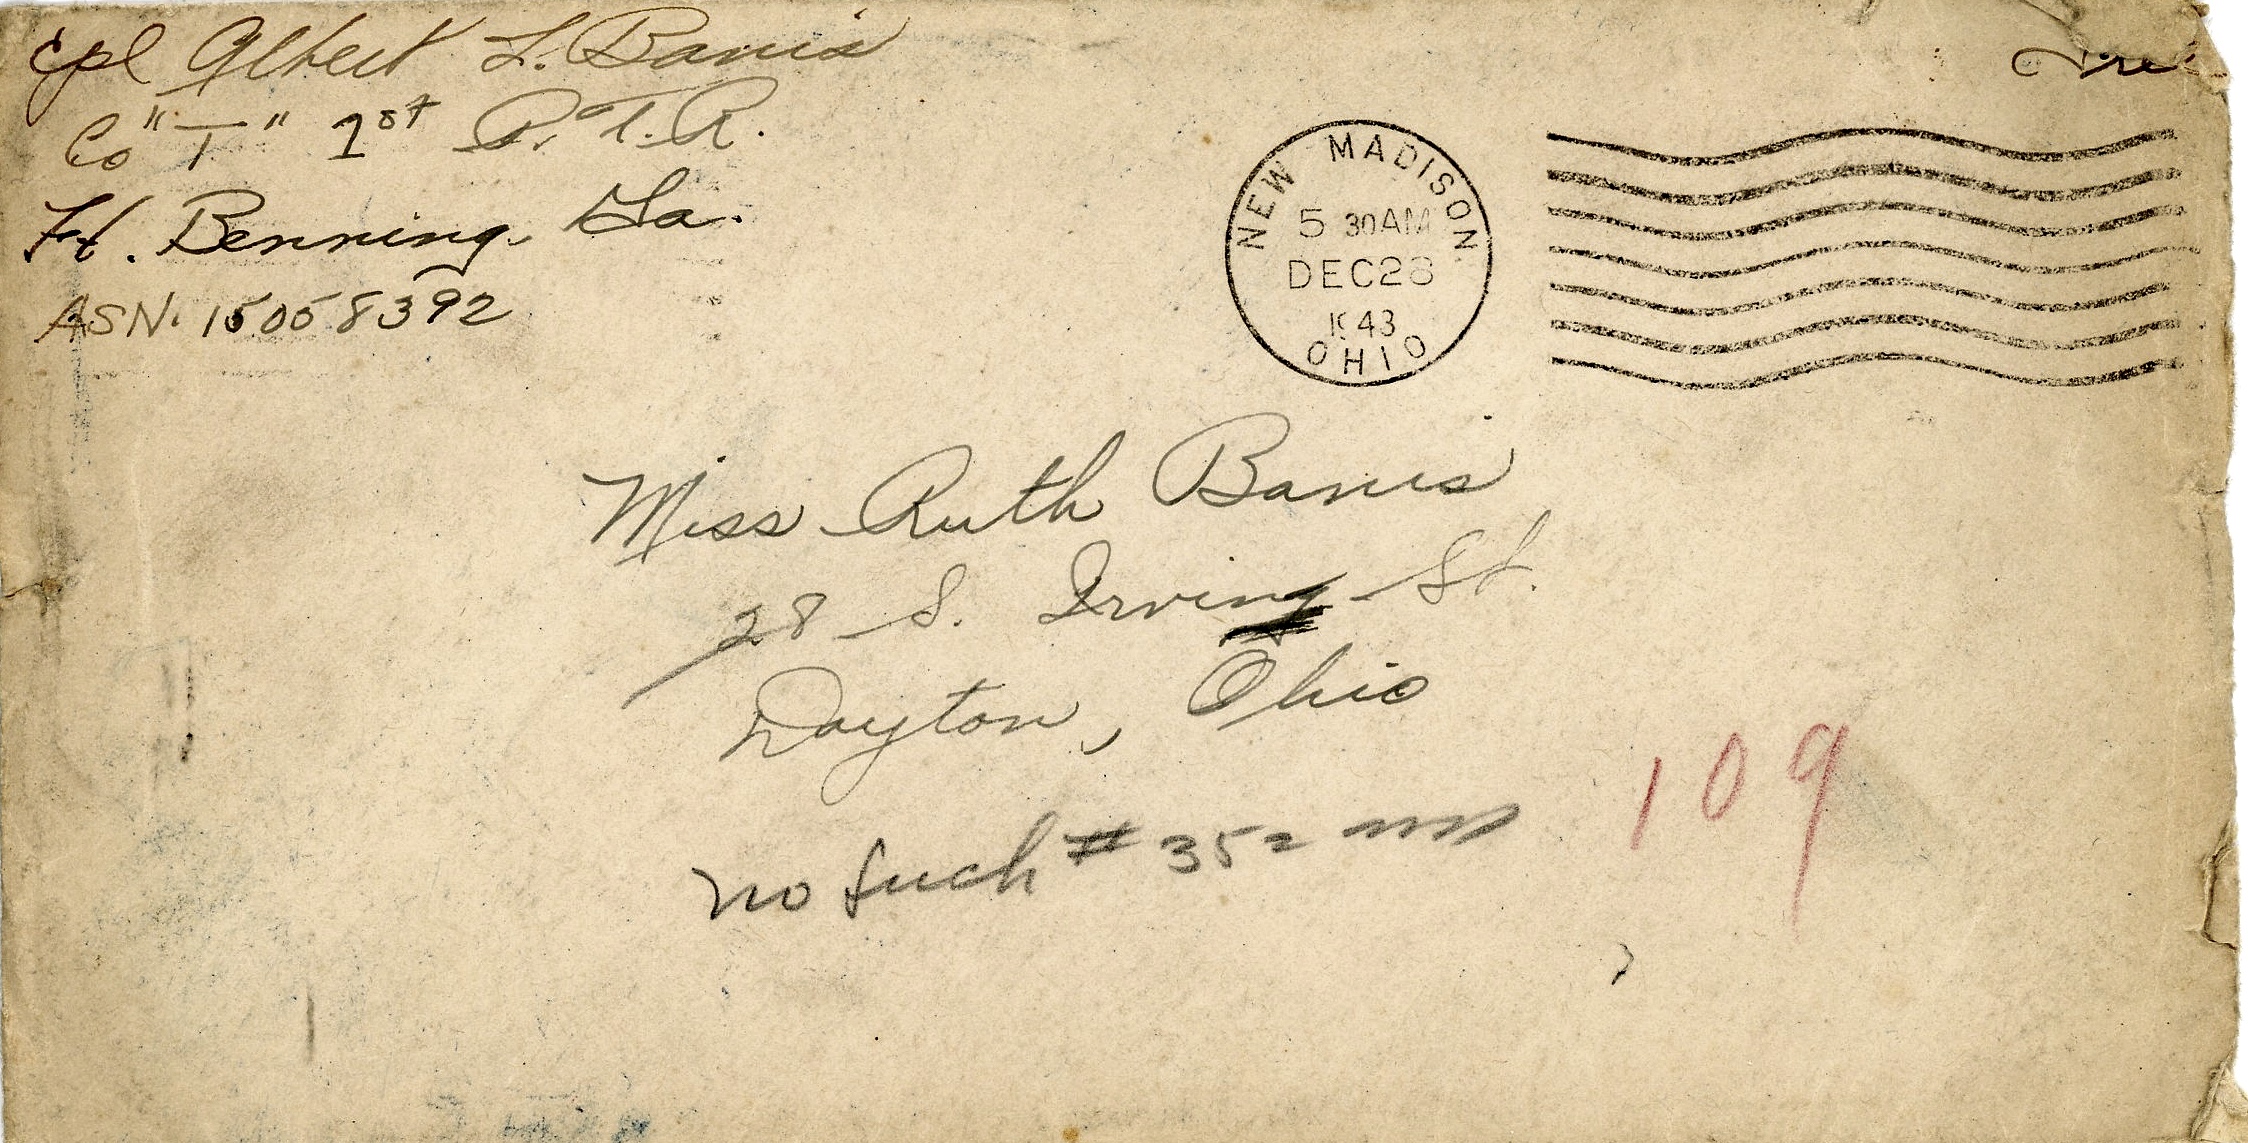 Cpl Albert L. Banis
Co "T" 1st P.T.R.
Ft. Benning, Ga.
ASN. 15058392
NEW MADISON
5 30 AM
DEC 28
1943
OHIO
Miss Ruth Banis
28 S. Irving St.
Dayton, Ohio
No Such # 352
109